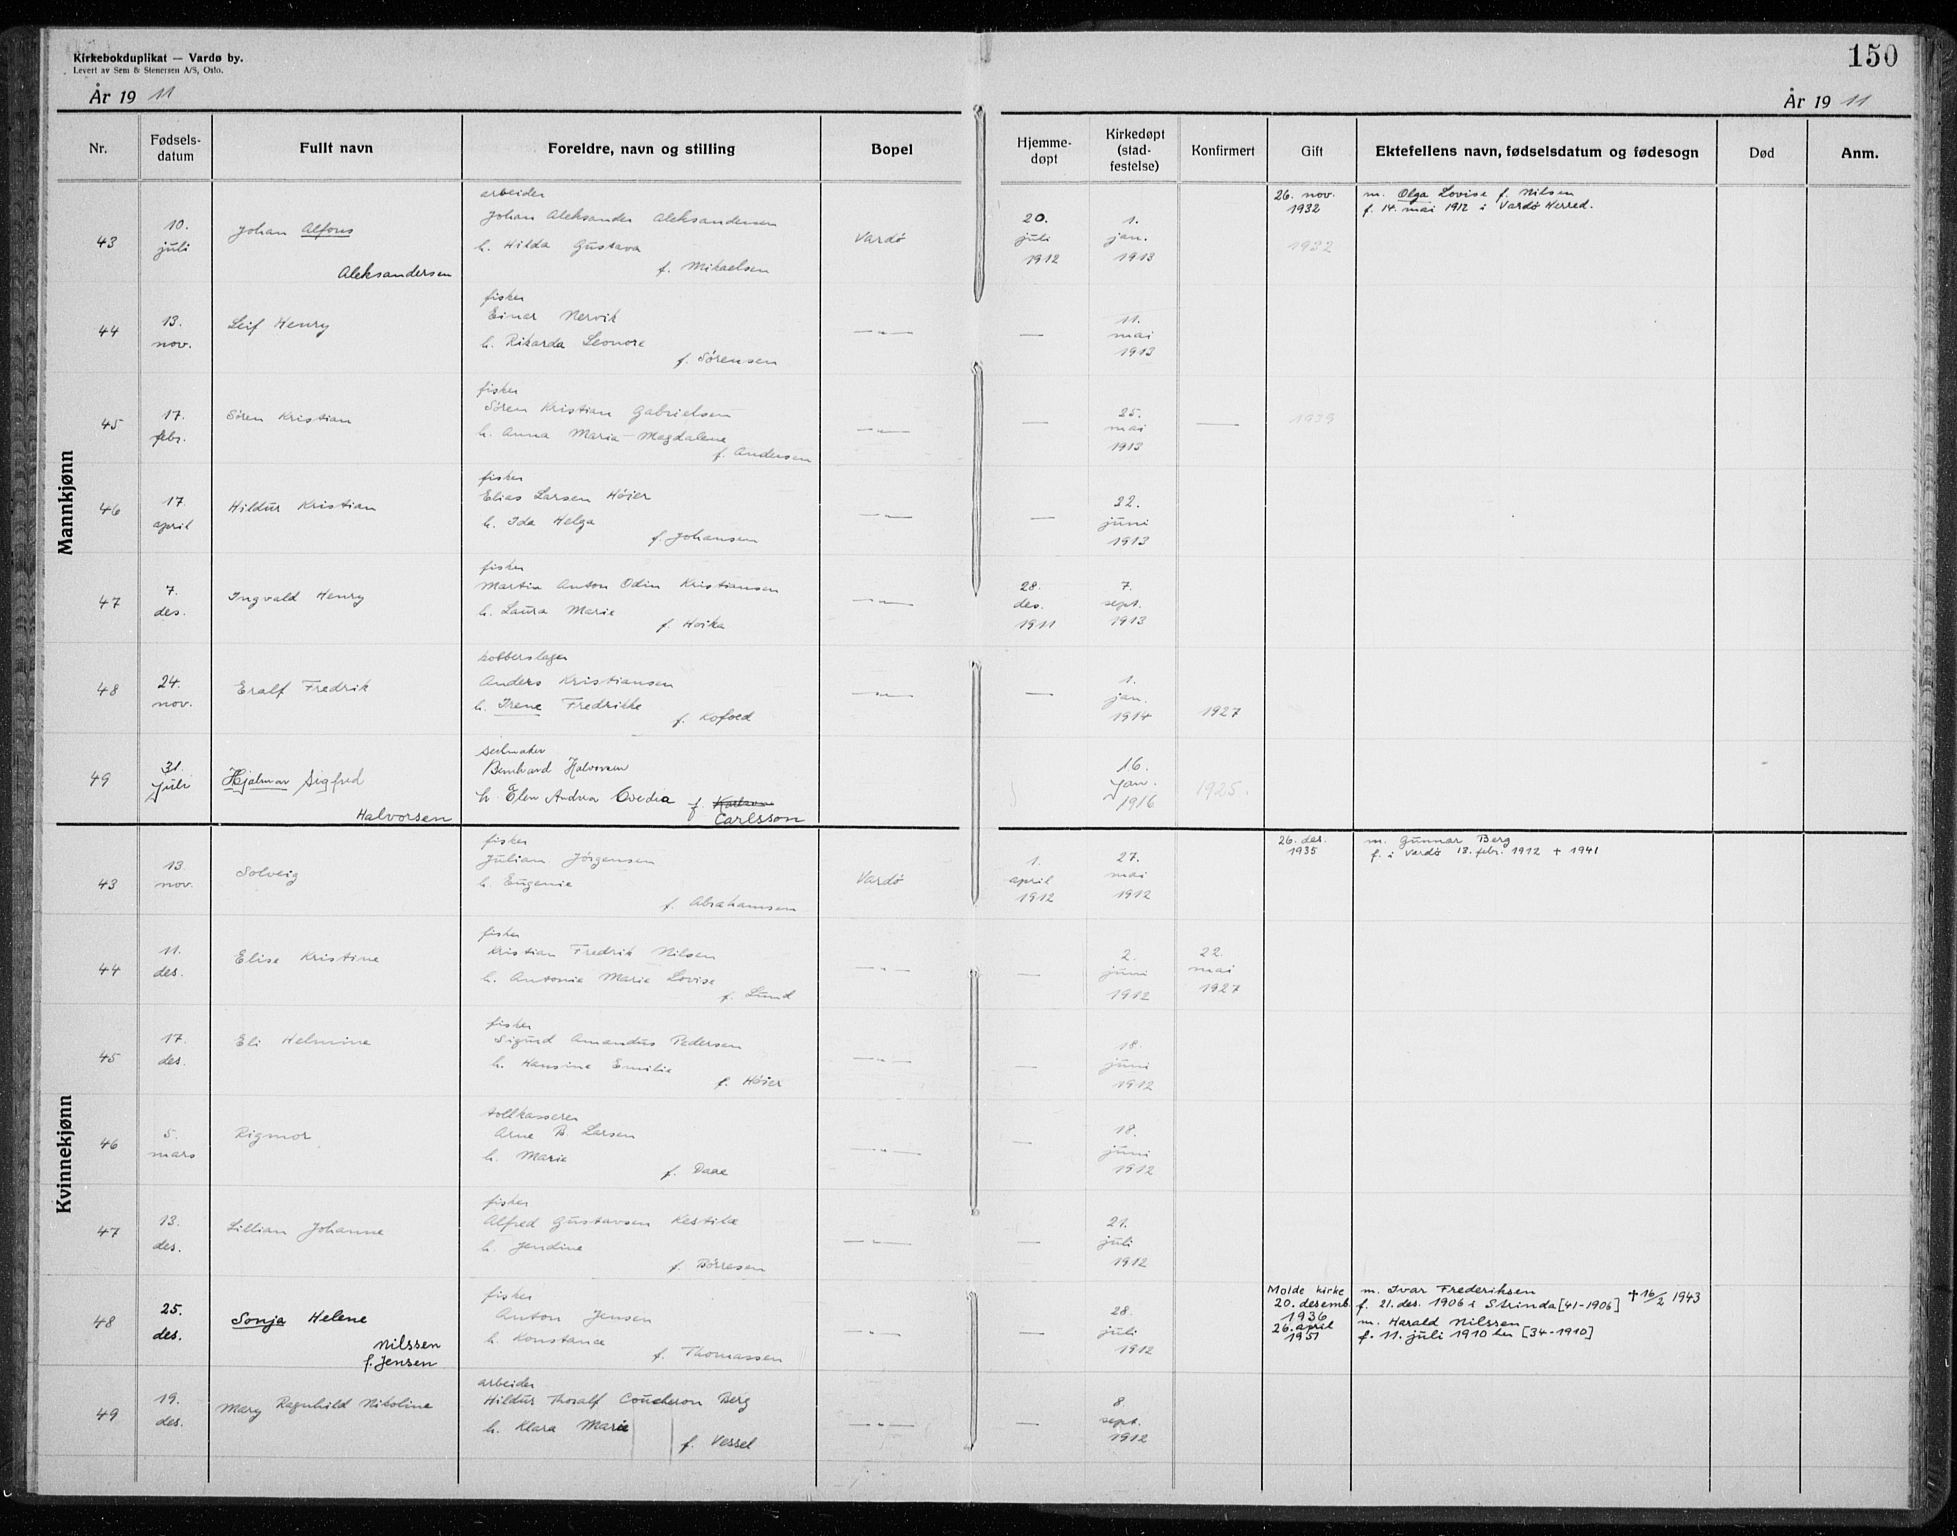 Kirkebokduplikat — Vardø by.
Levert av Sem & Stenersen A/S, Oslo.
150
År 19 11
År 19 11
Nr. Fødsels-datum Fullt navn Foreldre, navn og stilling Bopel Hjemme-døpt Kirkedøpt (stad-festelse) Konfirmert Gift Ektefellens navn, fødselsdatum og fødesogn Død Anm.
Mannkjønn
arbeider 26. nov. m. Olga Lovise f. Nilsen
10. Johan Aleksander Aleksandersen 20. 1. 1932 f. 14. mai 1912 i Vardø Herred.
43 juli Johan Alfons h. Hilda Gustava Vardø juli jan. 1932
Aleksandersen f. Mikaelsen 1912 1913
fisker
13. Einar Nervik 11.
44 nov. Leif Henry h. Rikarda Leonore —„— — mai
f. Sørensen 1913
fisker
17. Søren Kristian Gabrielsen 25.
45 febr. Søren Kristian h. Anna Maria-Magdalene —„— — mai — 1939
f. Andersen 1913
fisker
17. Elias Larsen Høier 22.
46 april Hildur Kristian h. Ida Helga —„— — juni
f. Johansen 1913
fisker
7. Martin Anton Odin Kristiansen 28. 7.
47 des. Ingvald Henry h. Laura Marie —„— des. sept.
f. Hoika 1911 1913
kobberslager
24. Anders Kristiansen 1.
48 nov. Eralf Fredrik h. Irene Fredrikke —„— — jan.
f. Kofoed 1914 1927
seilmaker
31. Bernhard Halvorsen 16.
49 juli Hjalmar Sigfred h. Elen Andrea f. jan. 1925.
Halvorsen Carlsson 1916
Kvinnekjønn
fisker 26. des. m. Gunnar Berg
13. Julian Jørgensen 1. 27. 1935 f. i Vardø 13. febr. 1912 + 1941
43 nov. Solveig h. Eugenie Vardø april mai
f. Abrahamsen 1912 1912
fisker
11. Kristian Fredrik Nilsen 2. 22.
44 des. Elise Kristine h. Antonie Marie Lovise —„— — juni mai
f. Lund 1912 1927
fisker
17. Sigurd Amandus Pedersen 18.
45 des. Eli Helmine h. Hansine Emilie —„— — juni
f. Høier 1912
tollkasserer
5. Arne B. Larsen 18.
46 mars Rigmor h. Marie —„— — juni
f. Daae 1912
fisker
13. Alfred Gustavsen Kestila 21.
47 des. Lillian Johanne h. Jendine —„— — juli
f. Børresen 1912
fisker Molde kirke m. Ivar Frederiksen + 16/2 1943
25. Anton Jensen 28. 20. desemb. 1936 f. 21. des. 1906 i Strinda [41-1906]
48 des. Sonja Helene h. Konstance —„— — juli 26. april m. Harald Nilssen
Nilssen f. Thomassen 1912 1951 f. 11. juli 1910 her [34-1910]
f. Jensen
arbeider
19. Hildur Thoralf Coucheron Berg 8.
49 des. Mary Ragnhild Nikoline h. Klara Marie —„— — sept.
f. Vessel 1912